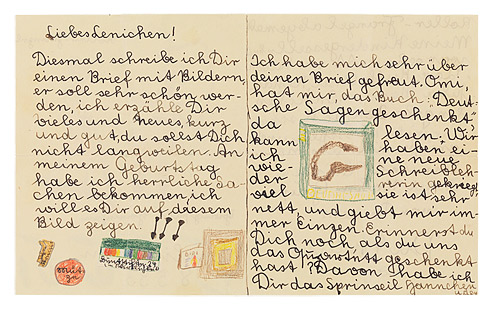 Liebes Lenichen!
Diesmal schreibe ich Dir
einen Brief mit Bildern,
er soll sehr schön wer-
den, ich erzähle Dir
vieles und neues, kurz
und gut, du sollst Dich
nicht langweilen. An
meinem Geburtstag
habe ich herrliche Sa-
chen bekommen, ich
will es Dir auf diesem
Bild zeigen.
Ich habe mich sehr über
deinen Brief gefreut. Omi,
hat mir, das Buch: Deut-
sche Sagen geschenkt,
da lesen. Wir
kann haben ei-
ich eine neue
wie Schreibleh-
der rerin gekriegt
viel sie ist sehr
nett, und giebt mir im-
mer Einzen. Erinnerst du
Dich noch als du uns
das Quartett geschenkt
hast? Davon habe ich
Dir das Sprinseil Hannchen